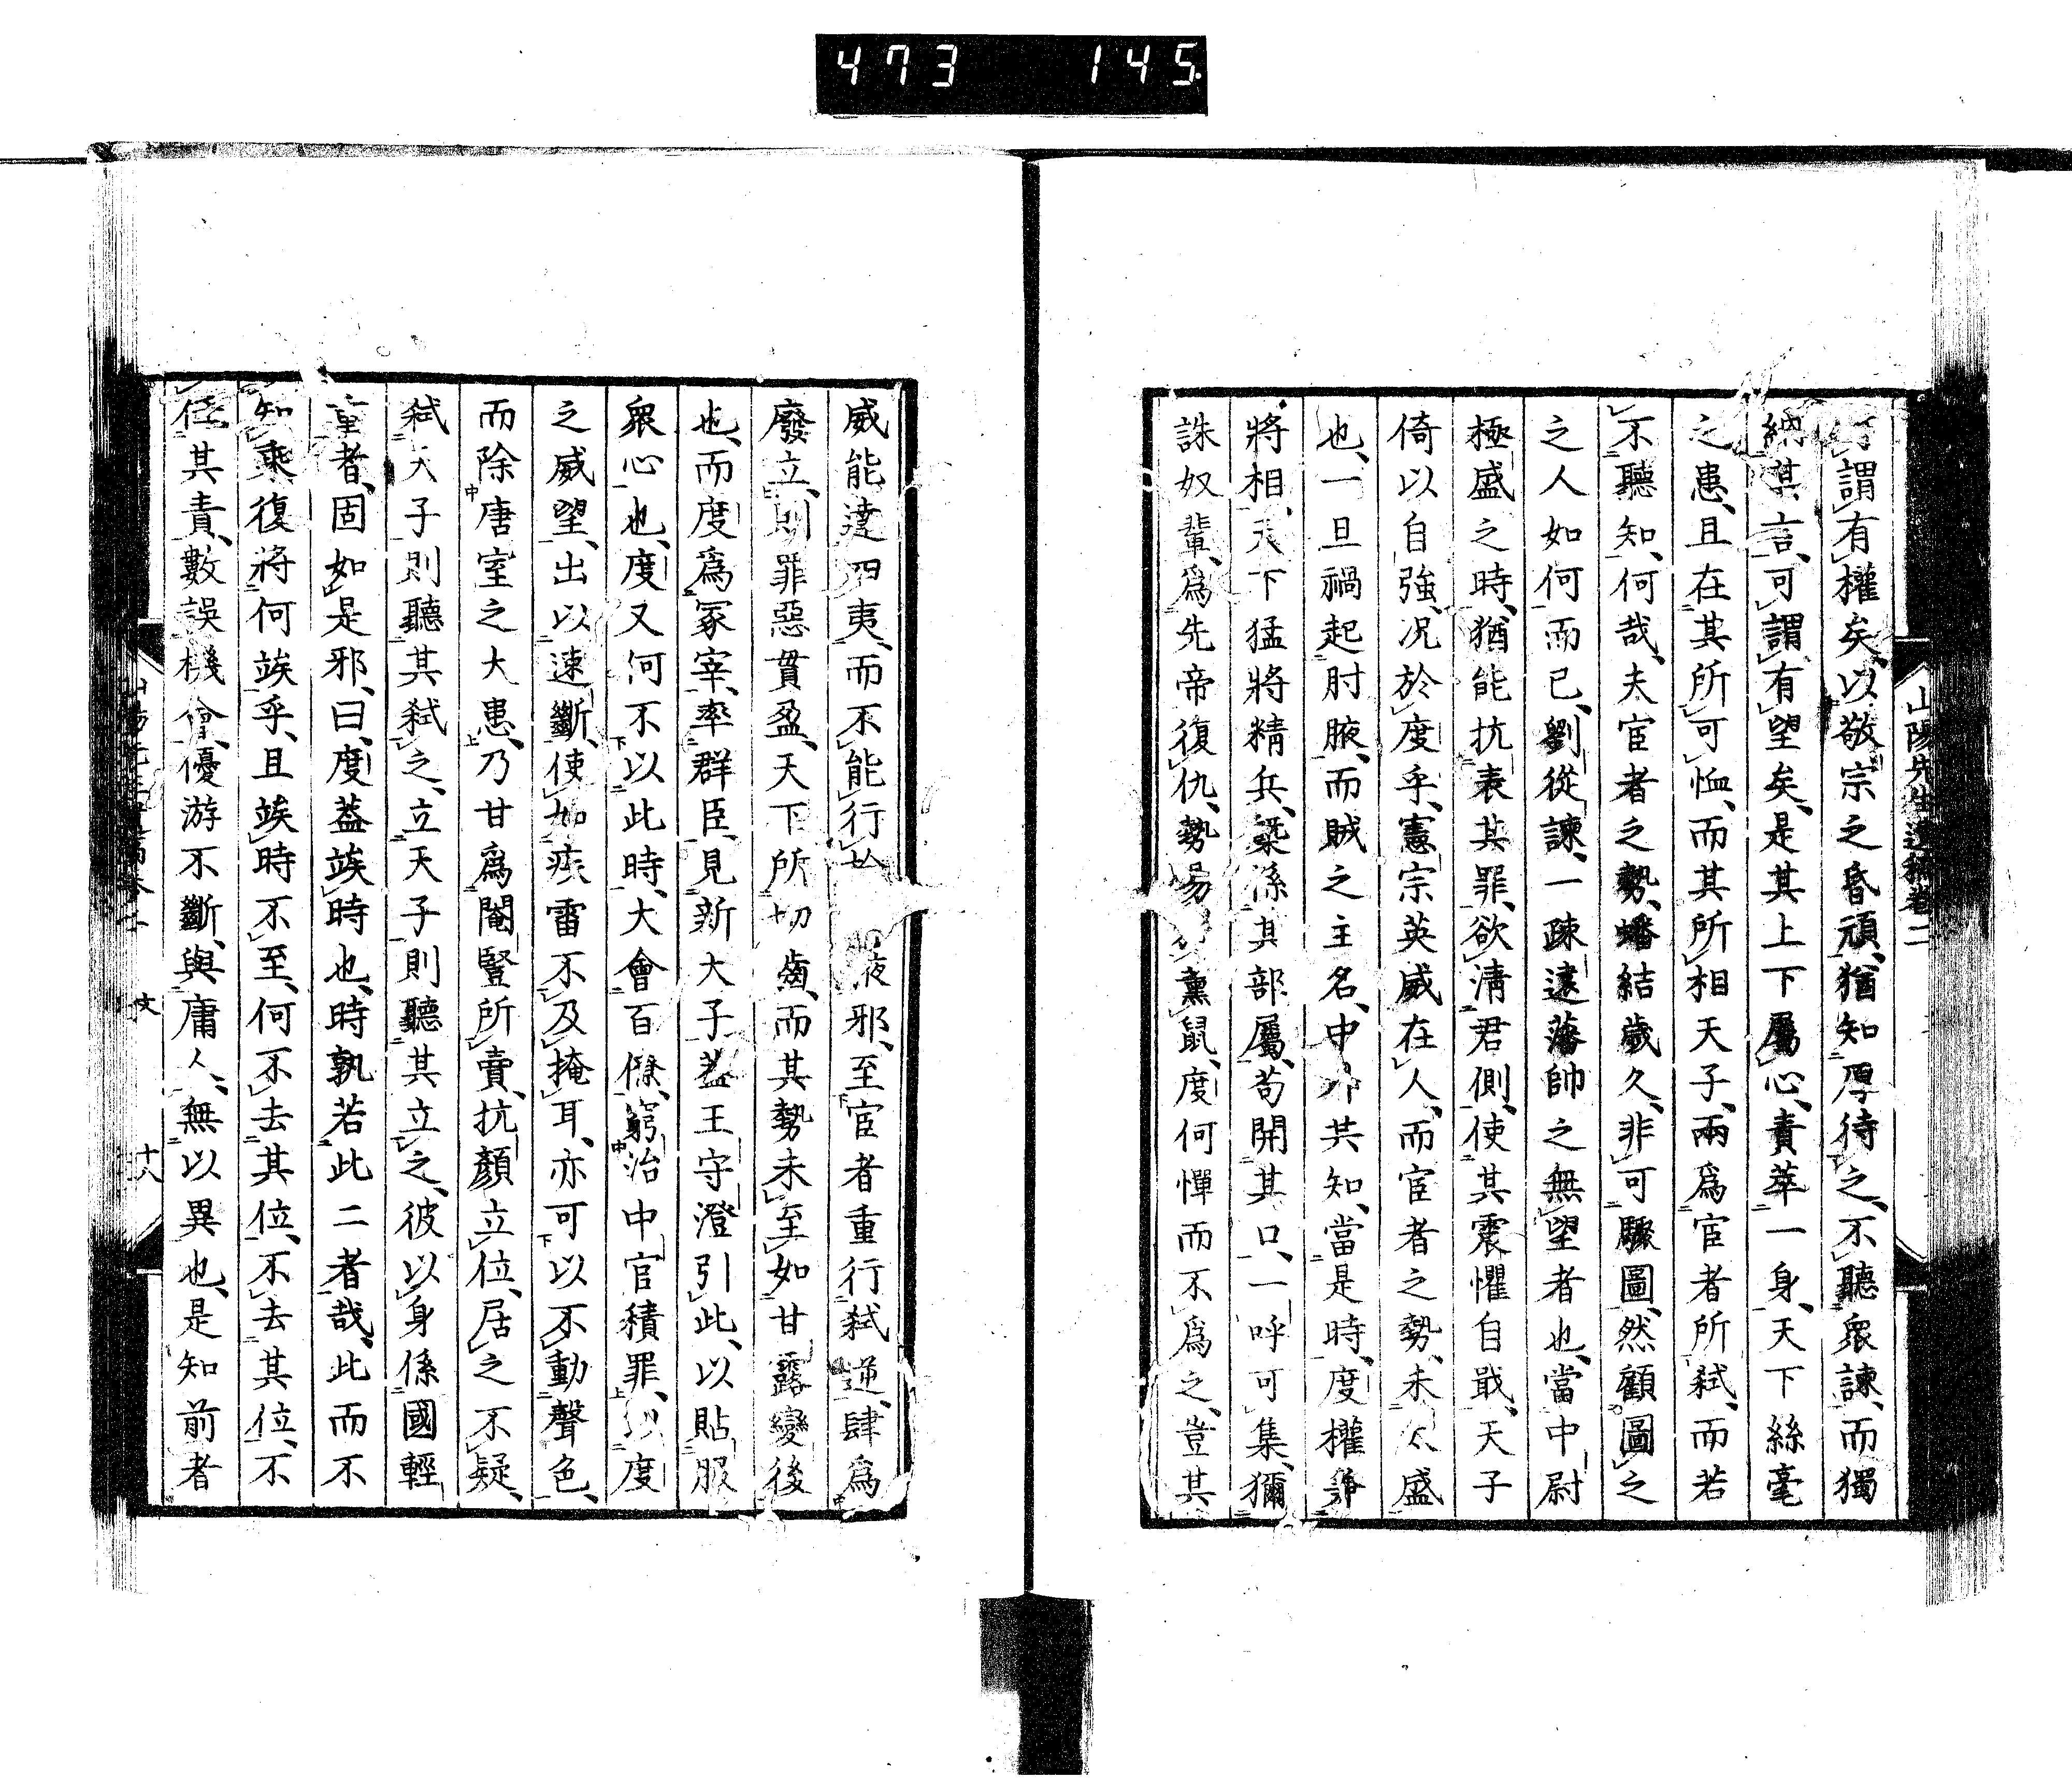 473 145
山陽先生遺稿卷二
可謂有權矣、以敬宗之昏頑、猶知厚待之、不聽衆諫、而獨
納其言、可謂有望矣、是其上下屬心、責萃一身、天下絲毫
之患、且在其所可恤、而其所相天子、兩爲宦者所弑、而若
不聽知、何哉、夫宦者之勢、蟠結歲久、非可驟圖、然顧圖之
之人如何而已、劉從諫、一疎遠藩帥之無望者也、當中尉
極盛之時、猶能抗表其罪、欲淸君側、使其震懼自戢、天子
倚以自強、况於度乎、憲宗英威在人、而宦者之勢、未太盛
也、一旦禍起肘腋、而賊之主名、中外共知、當是時、度權爭
將相、天下猛將精兵、梁係其部屬、苟開其口、一呼可集、獮
誅奴輩、爲先帝復仇、勢易薰鼠、度何憚而不爲之、豈其
威能達四夷、而不能行於 液邪、至宦者重行弑逆、肆爲
廢立、則罪惡貫盈、天下所切齒、而其勢未至如甘露變後
也、而度爲冢宰、率群臣、見新天子、葢王守澄引此、以貼服
衆心也、度又何不以此時、大會百僚、窮治中官積罪、以度
之威望、出以速斷、使如疾雷不及掩耳、亦可以不動聲色、
而除唐室之大患、乃甘爲閹豎所賣、抗顏立位、居之不疑、
弑天子則聽其弑之、立天子則聽其立之、彼以身係國輕
重者、固如是邪、曰、度葢竢時也、時孰若此二者哉、此而不
知乘、復將何竢乎、且竢時不至、何不去其位、不去其位、不
任其責、數誤機會、優游不斷、與庸人、無以異也、是知前者
文 十八